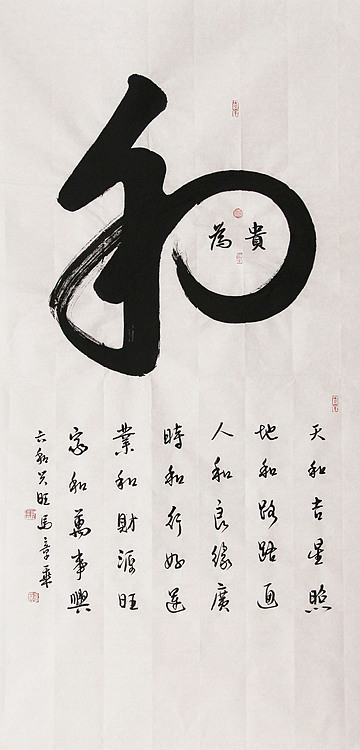 和
為貴
天和吉星照
地和路路通
人和良緣廣
時和行好運
業和財源旺
家和萬事興
六和兴旺馬章華